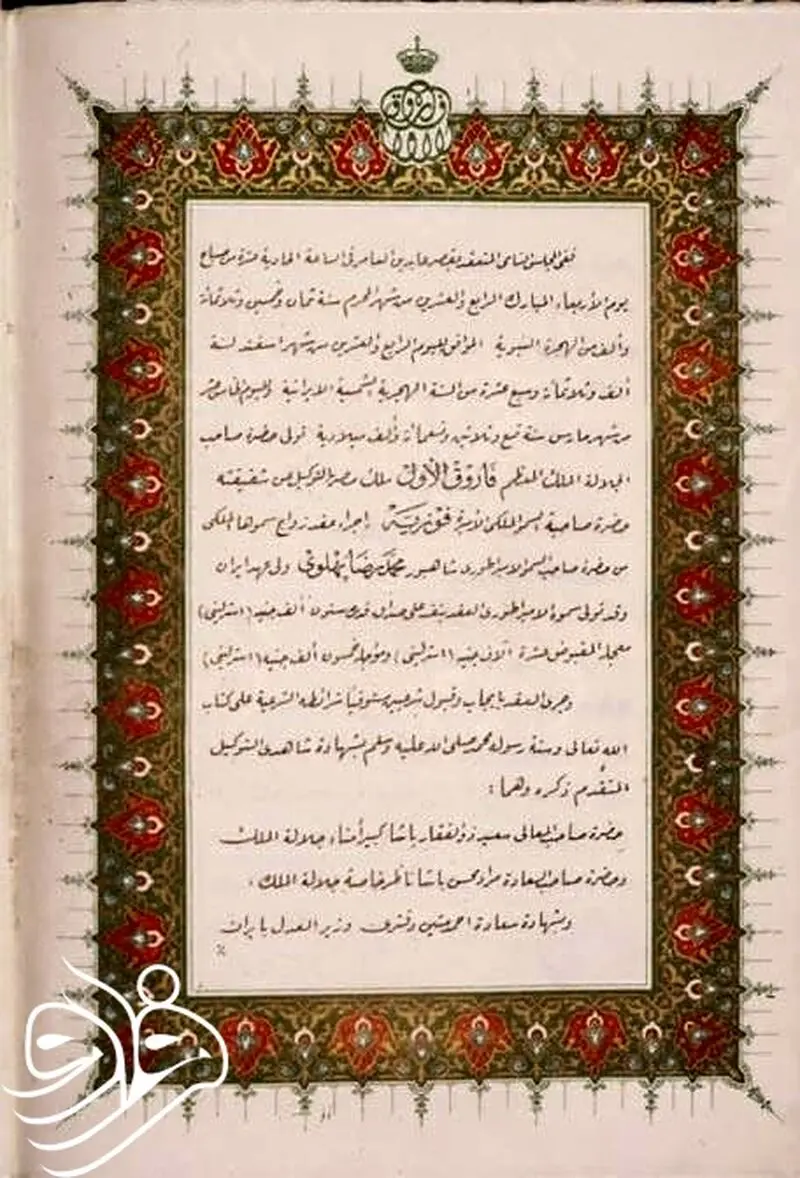 فاروق
ففى المجلس السامى المنعقد بقصر عابدين العامر فى الساعة الحادية عشرة من صباح
يوم الأربعاء المبارك الرابع والعشرين من شهر المحرم سنة ثمان وخمسين وثلاثمائة
وألف من الهجرة النبوية الموافق لليوم الرابع والعشرين من شهر اسفند لسنة
ألف وثلاثمائة وسبع عشرة من السنة الهجرية الشمسية الايرانية ولليوم الخامس عشر
من شهر مارس سنة تسع وثلاثين وتسعمائة وألف ميلادية تولى حضرة صاحب
الجلالة الملك المعظم فاروق الأول ملك مصر بالتوكيل عن شقيقته
حضرة صاحبة السمو الملكى الأميرة فوزية إجراء عقد زواج سموها الملكى
من حضرة صاحب السمو الامبراطورى شاهبور محمد رضا پهلوى ولى عهد ايران
وقد تولى سموه الامبراطورى العقد بنفسه على صداق قدره ستون ألف جنيه (استرلينى)
معجله المقبوض عشرة آلاف جنيه (استرلينى) ومؤجله خمسون ألف جنيه (استرلينى)
وجرى العقد بايجاب وقبول شرعيين مستوفيا شرائطه الشرعية على كتاب
الله تعالى وسنة رسوله محمد صلى الله عليه وسلم بشهادة شاهدى التوكيل
المتقدم ذكره وهما :
حضرة صاحب المعالى سعيد ذو الفقار باشا كبير أمناء جلالة الملك
وحضرة صاحب السعادة مراد محسن باشا ناظر خاصة جلالة الملك ،
وبشهادة سعادة احمد متين دفترى وزير العدل بايران